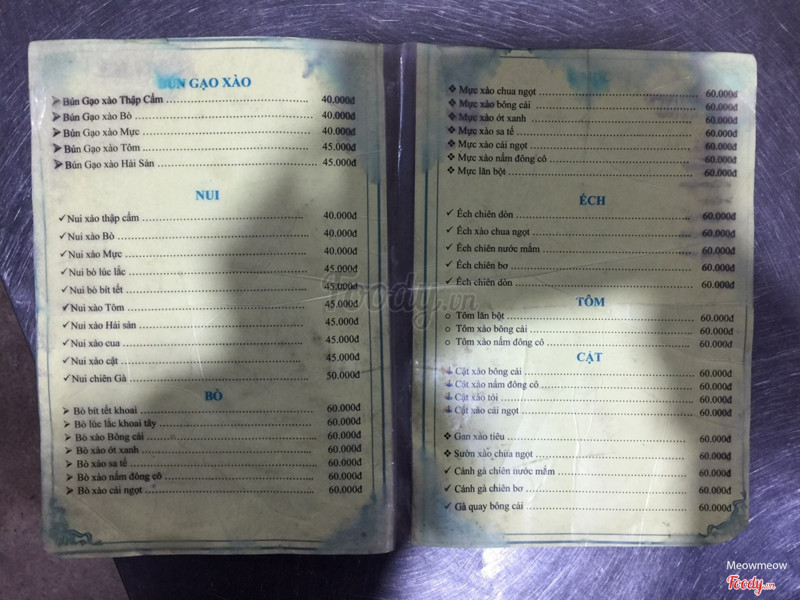 BÚN GẠO XÀO
Bún Gạo xào Thập Cẩm 40.000đ
Bún Gạo xào Bò 40.000đ
Bún Gạo xào Mực 40.000đ
Bún Gạo xào Tôm 45.000đ
Bún Gạo xào Hải Sản 45.000đ
NUI
Nui xào thập cẩm 40.000đ
Nui xào Bò 40.000đ
Nui xào Mực 40.000đ
Nui bò lúc lắc 45.000đ
Nui bò bít tết 45.000đ
Nui xào Tôm 45.000đ
Nui xào Hải sản 45.000đ
Nui xào cua 45.000đ
Nui xào cật 45.000đ
Nui chiên Gà 50.000đ
BÒ
Bò bít tết khoai 60.000đ
Bò lúc lắc khoai tây 60.000đ
Bò xào Bông cải 60.000đ
Bò xào ớt xanh 60.000đ
Bò xào sa tế 60.000đ
Bò xào nấm đông cô 60.000đ
Bò xào cải ngọt 60.000đ
Mực xào chua ngọt 60.000đ
Mực xào bông cải 60.000đ
Mực xào ớt xanh 60.000đ
Mực xào sa tế 60.000đ
Mực xào cải ngọt 60.000đ
Mực xào nấm đông cô 60.000đ
Mực lăn bột 60.000đ
ẾCH
Ếch chiên dòn 60.000đ
Ếch xào chua ngọt 60.000đ
Ếch chiên nước mắm 60.000đ
Ếch chiên bơ 60.000đ
Ếch chiên dòn 60.000đ
TÔM
Tôm lăn bột 60.000đ
Tôm xào bông cải 60.000đ
Tôm xào nấm đông cô 60.000đ
CẬT
Cật xào bông cải 60.000đ
Cật xào nấm đông cô 60.000đ
Cật xào tỏi 60.000đ
Cật xào cải ngọt 60.000đ
Gan xào tiêu 60.000đ
Sườn xào chua ngọt 60.000đ
Cánh gà chiên nước mắm 60.000đ
Cánh gà chiên bơ 60.000đ
Gà quay bông cải 60.000đ
Foody.vn
Meowmeow
Foody.vn